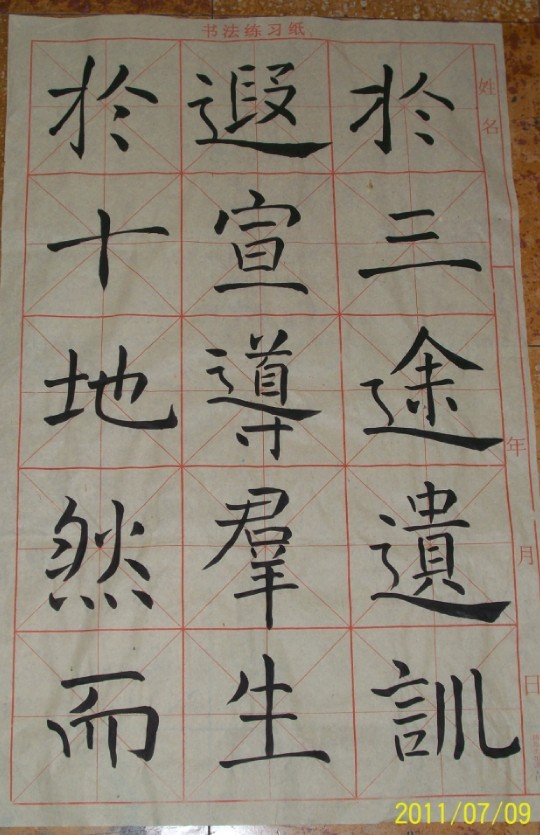 书法练习纸
姓名
年
月
日
於三途遺訓
遐宣導羣生
於十地然而
2011/07/09